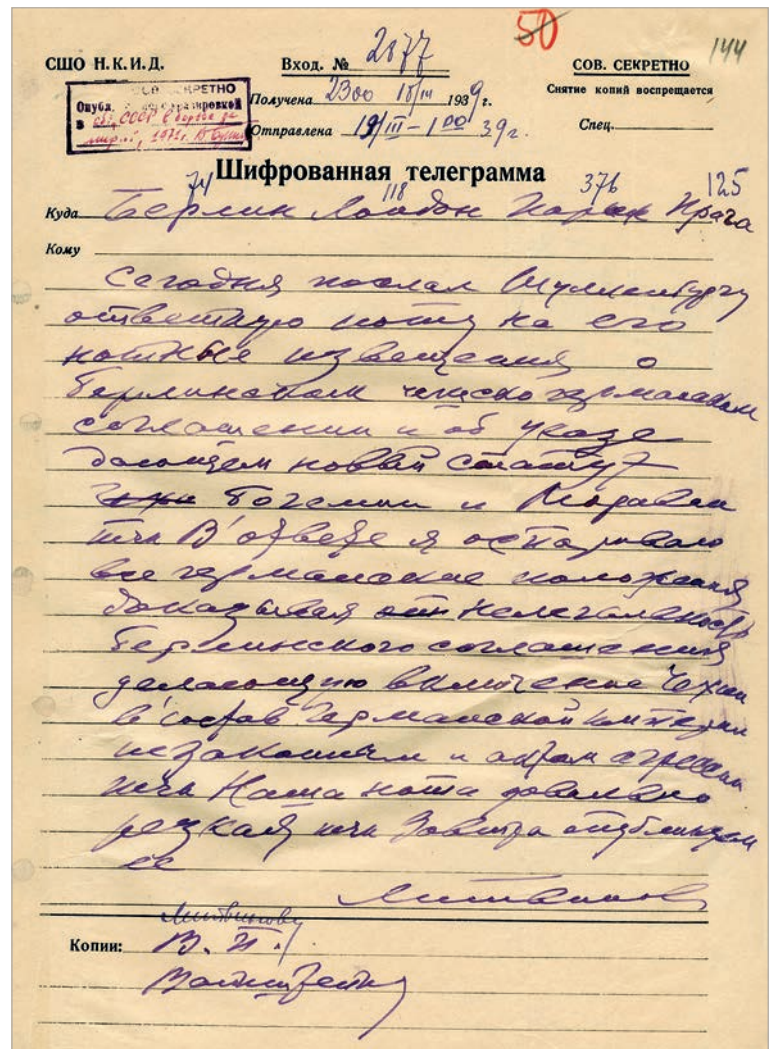 50
144
СШО Н.К.И.Д.
Вход. № 2877
СОВ. СЕКРЕТНО
Снятие копий воспрещается
СОВ. СЕКРЕТНО
Опубл.
в сб. „СССР в борьбе за
мир..", 1971г.
Получена 23 00 18/III 1939г.
Отправлена 19/III – 1 00 39г.
Спец.
Шифрованная телеграмма
74 118 376 125
Куда Берлин Лондон Париж Прага
Кому
Сегодня послал Шуленбургу
ответную ноту на его
нотные извещения о
Берлинском чешско германском
соглашении и об указе
дающем новый статут
Богемии и Моравии
тчк В ответе я оспариваю
все германские положения
доказывая нелегальность
Берлинского соглашения
делающую включение Чехии
в состав Германской империи
незаконным и актом агрессии
тчк Наша нота довольно
резкая тчк Завтра опубликуем
ее
Литвинов
Копии: Литвинову
В. П.